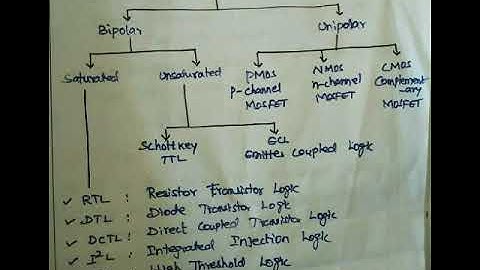 Bipolar Unipolar
Saturated Unsaturated PMOS NMOS CMOS
p-channel n-channel Complement
MOSFET MOSFET -ary
MOSFET
Schottkey ECL
TTL Emitter Coupled Logic
✓ RTL : Resistor Transistor Logic
✓ DTL : Diode Transistor Logic
✓ DCTL : Direct Coupled Transistor Logic
✓ I²L : Integrated Injection Logic
High Threshold Logic